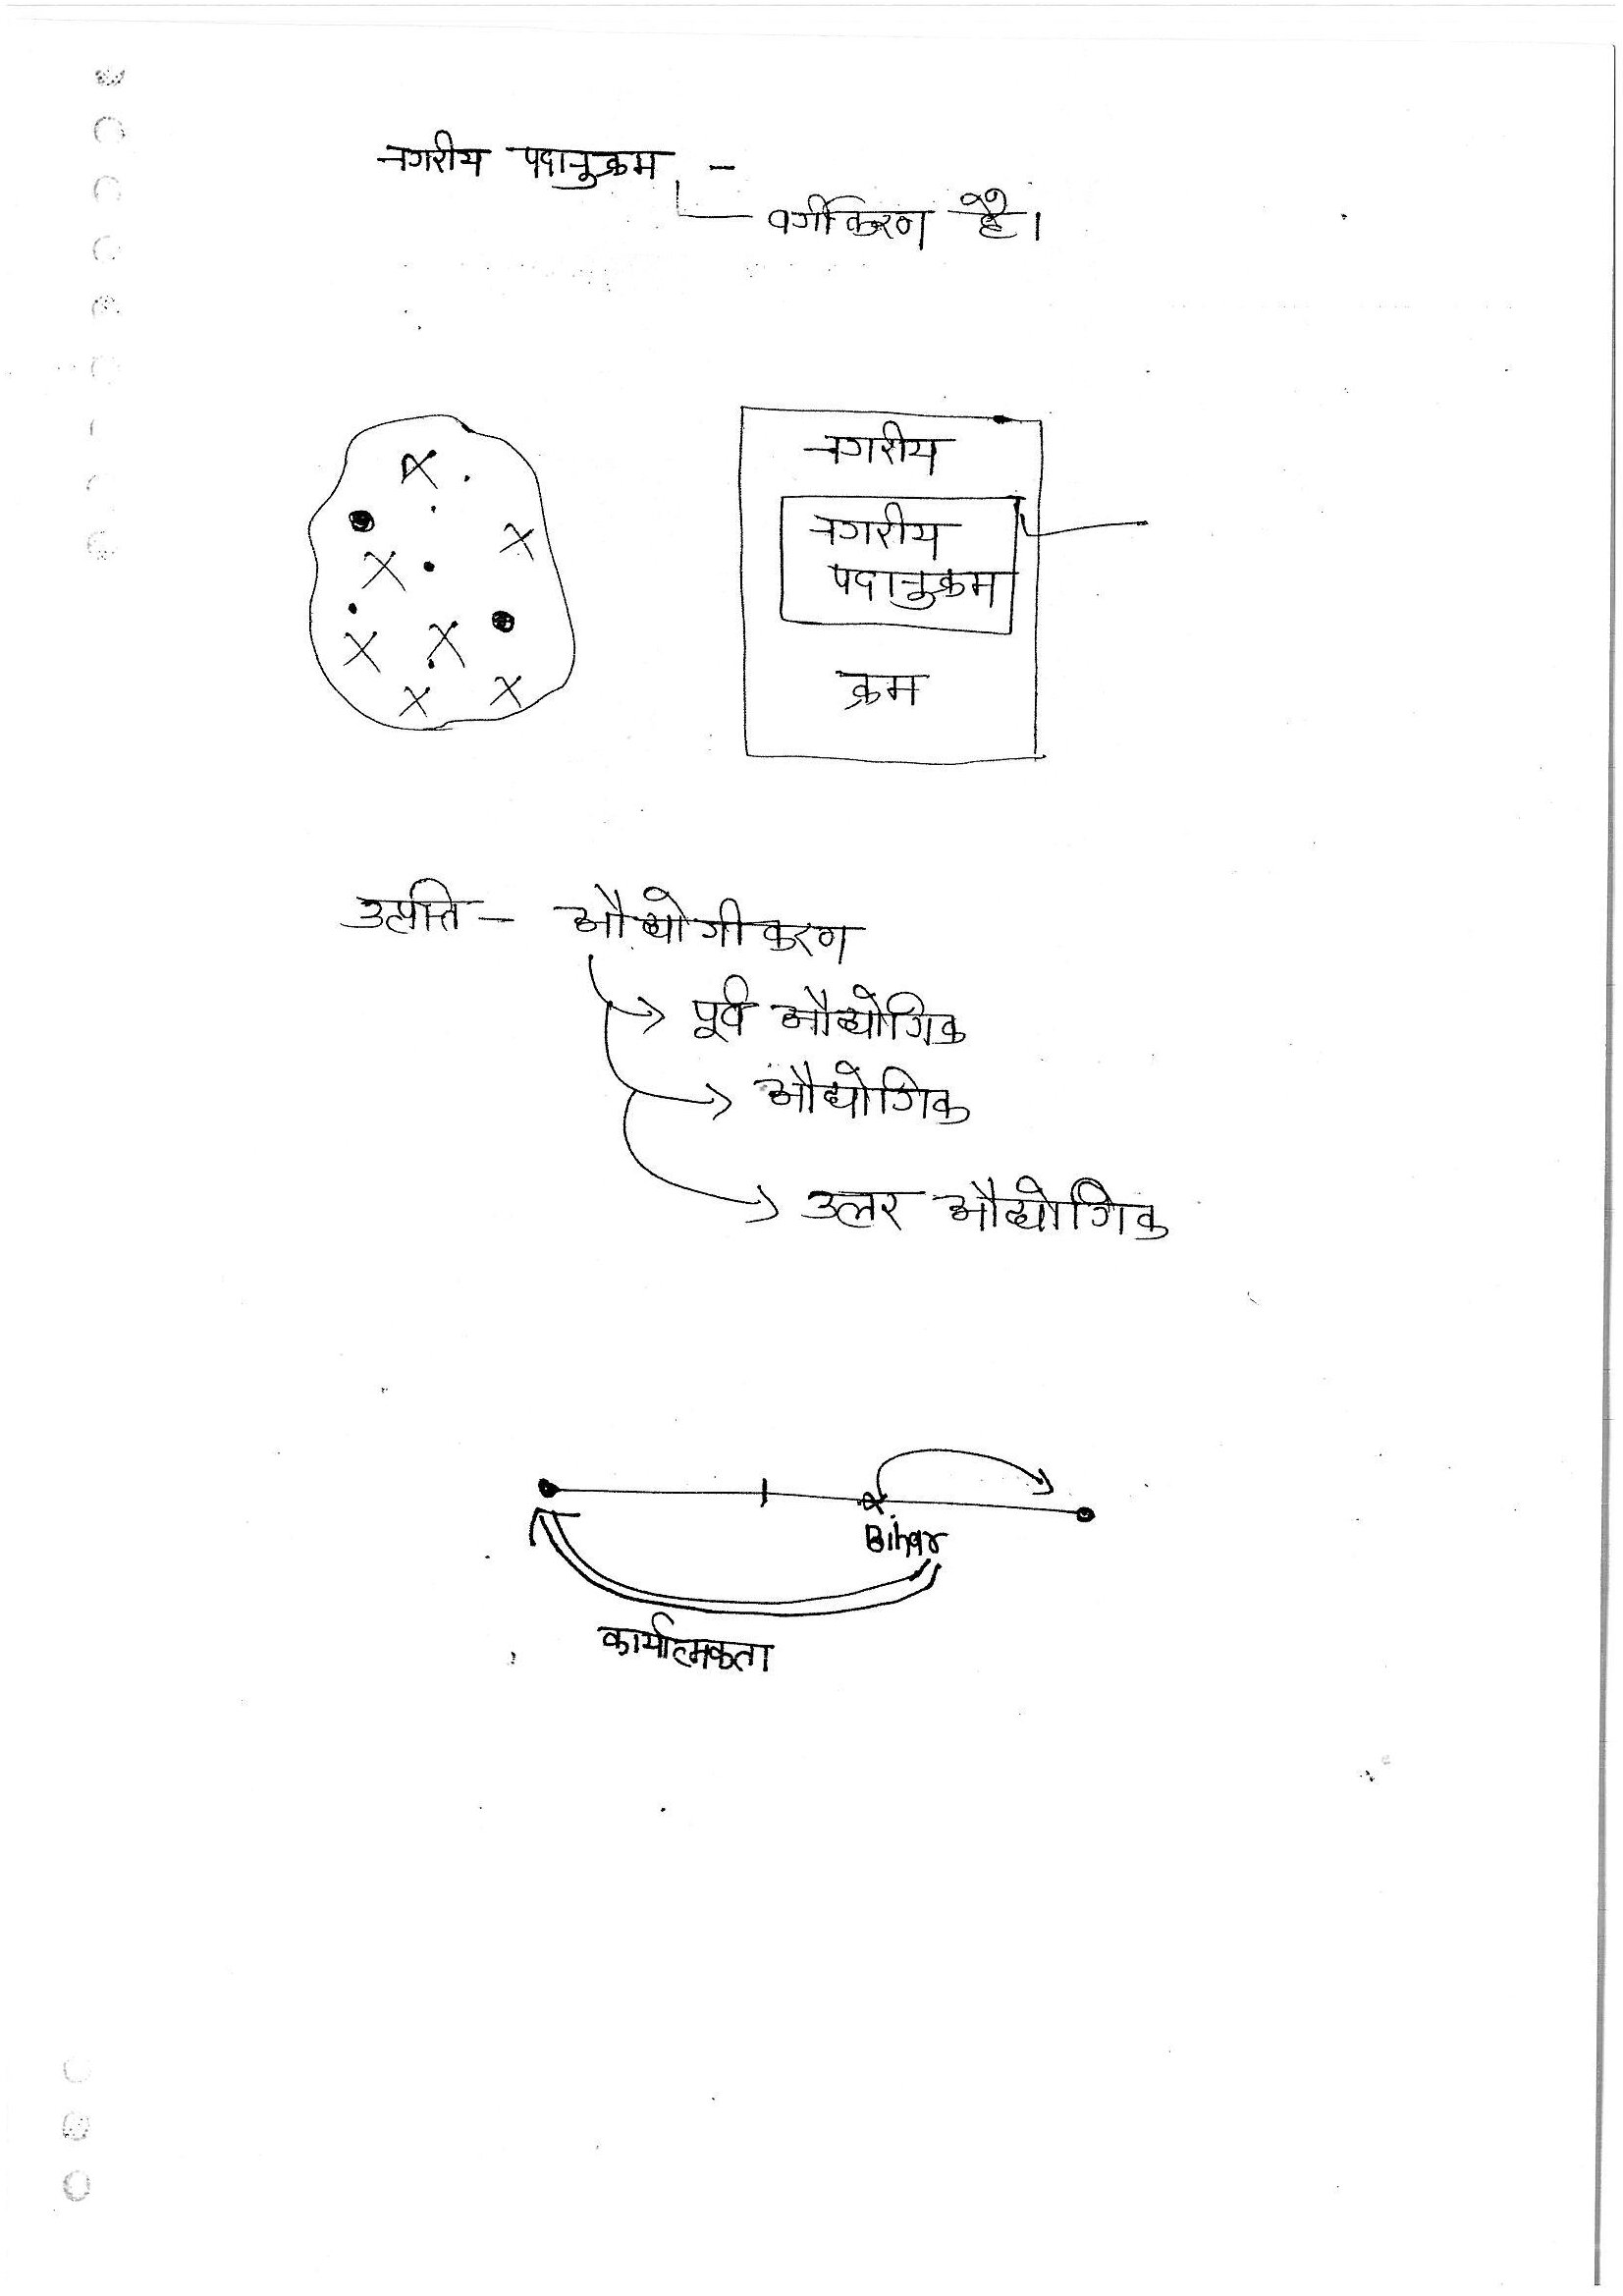 नगरीय पदानुक्रम -
वर्गीकरण है।
नगरीय
नगरीय
पदानुक्रम
क्रम
उत्पत्ति - औद्योगीकरण
पूर्व औद्योगिक
औद्योगिक
उत्तर औद्योगिक
Bihar
कार्यात्मकता